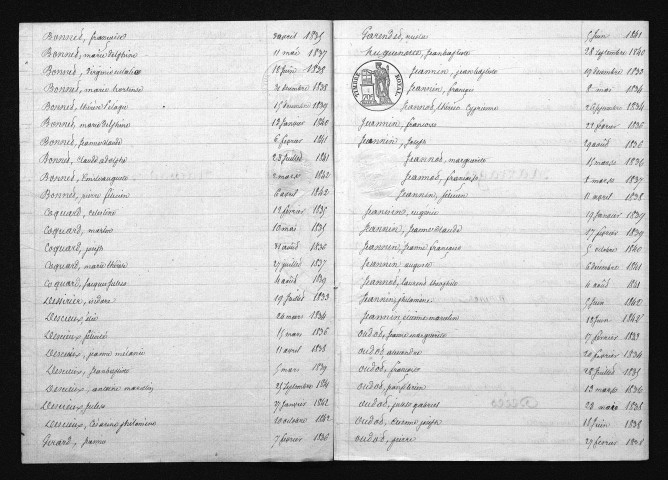 Bonnet, françoise 30 avril 1835
Bonnet, marie delphine 11 mai 1837
Bonnet, Virginie 18 juin 1838
Bonnet, marie hortense 31 décembre 1838
Bonnet, thérèse pélagie 15 décembre 1839
Bonnet, marie delphine 12 janvier 1840
Bonnet, jeanne claude 6 février 1841
Bonnet, claude adolphe 28 juillet 1841
Bonnet, emile auguste 2 mars 1842
Bonnet, pierre félicien 6 avril 1842
Coquard, célestine 12 février 1835
Coquard, 10 mai 1835
Coquard, joseph 31 août 1836
Coquard, marie thérèse 27 juillet 1837
Coquard, jacques jules 4 août 1839
Dessirier, isidore 19 juillet 1833
Descieux, élie 26 mars 1834
Descieux, félicité 15 mars 1836
Descieux, jeanne mélanie 11 avril 1838
Descieux, jean baptiste 5 mars 1839
Descieux, antoine marcelin 25 septembre 1841
Descieux, jules 27 janvier 1842
Descieux, philomène 20 octobre 1842
Girard, jeanne 7 février 1836
5 juin 1841
huguenotte, jean baptiste 28 septembre 1840
TIMBRE ROYAL
Jeannin, jean baptiste 19 décembre 1833
Jeannin, françois 8 mai 1834
Jeannot, Cyprienne 2 septembre 1834
Jeannin, françoise 23 février 1836
Jeannin, joseph 29 août 1836
Jeannot, marguerite 15 mars 1836
Jeannot, françoise 8 mars 1837
Jeannin, félicien 11 avril 1838
Jeannin, eugénie 19 janvier 1839
Jeannin, jeanne claude 17 février 1839
Jeannin, jeanne françoise 5 octobre 1840
Jeannin, auguste 6 décembre 1841
Jeannot, laurent théophile 4 août 1841
Jeannin, philomène 5 juin 1842
Jeannin, étienne marcelin 12 juin 1842
Oudot, jeanne marguerite 17 février 1833
Oudot, alexandre 20 février 1834
Oudot, françois 28 juillet 1835
Oudot, 13 mars 1836
Oudot, jules gabriel 23 mars 1838
Oudot, joseph 18 juin 1838
Oudot, pierre 27 février 1838